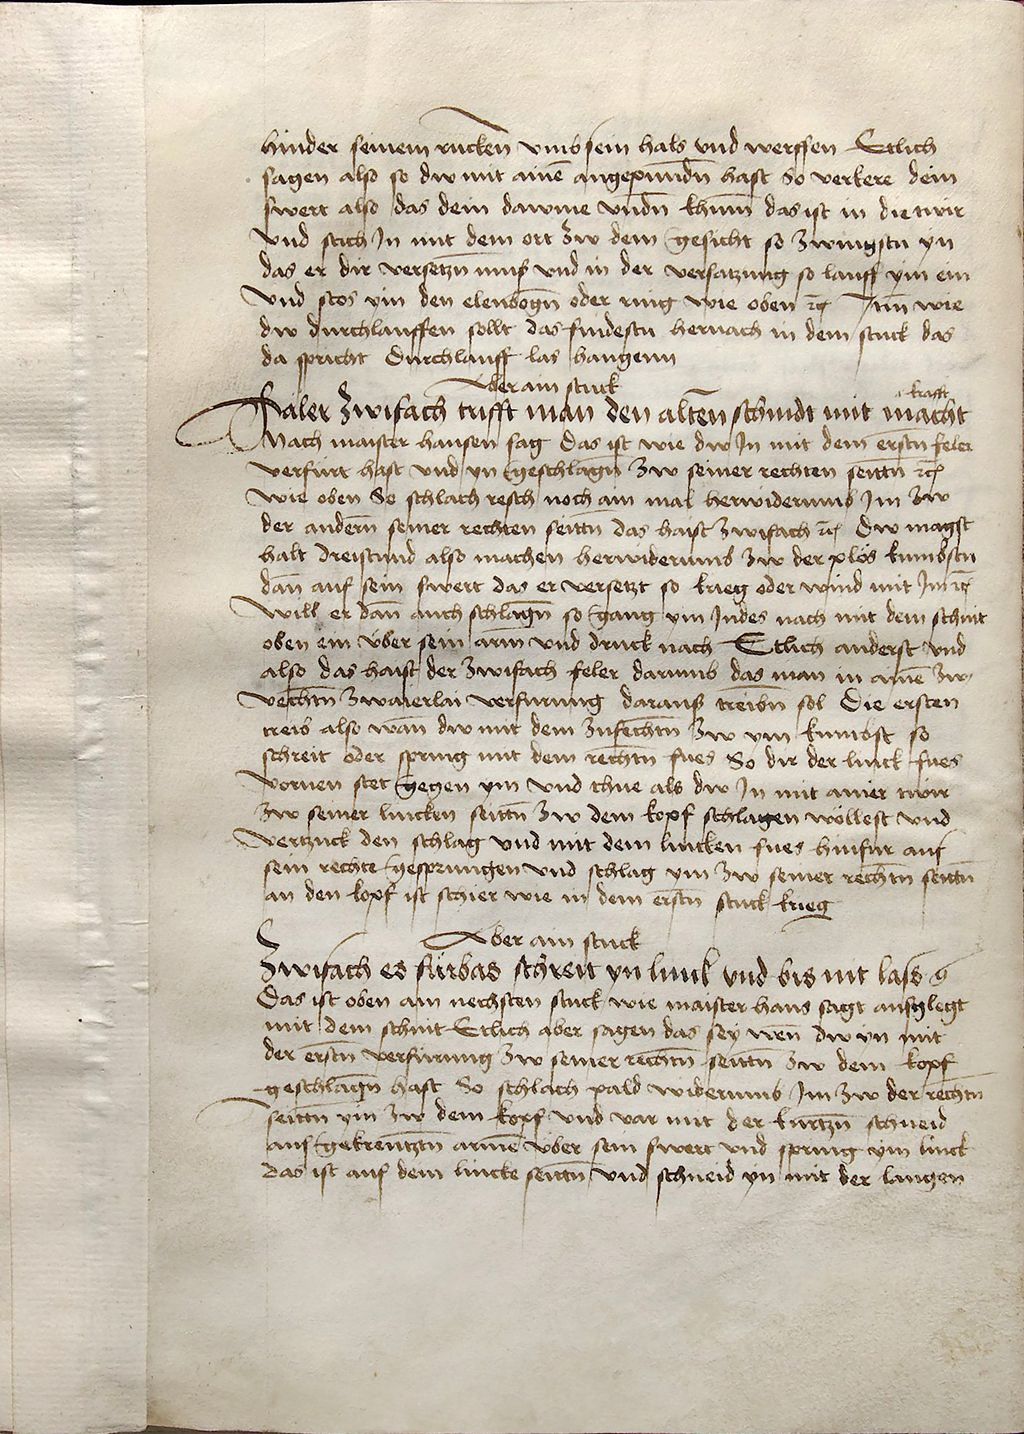 hinder seinem rucken vmb sein hals vnd werffen Etlich
sagen also so dw mit ainē angepundñ hast So verkere dein
swert also das dein dawme vndñ khum̄ das ist in die twir
vnd stich Jn mit dem ort zw dem gesicht so zwingstu yn
das er dir versetzñ mus vnd in der versatzung so lauff ym ein
vnd stos ym den elenbogñ oder ring wie oben ꝛc̄ Jtm̄ wie
dw durchlauffen sollt das findestu hernach in dem stuck das
da spricht Durchlauff las hangenn
Aber ain stuck
krafft
Faler zwifach trifft man den alten schnidt mit macht
Nach maister hansen sag Das ist wie dw Jn mit dem erstñ feler
verfurt hast vnd yn geschlagñ zw seiner rechten seittñ ꝛc̄
wie oben So schlach resch noch ain mal herwiderumb Jm zw
der andern̄ seiner rechten seittñ das haist zwifach ꝛc̄ Dw magst
halt dreistund also machen herwiderumb zw der plos kumbstu
dan̄ auf sein swert das er versetzt so krieg oder wind mit Jm ꝛc̄
will er dan̄ auch schlagñ so gang ym Jndes nach mit dem schnit
oben ein vber sein arm vnd druck nach Etlich anderst vnd
also das haist der zwifach feler darumb das man in ainē zw
vechtñ zwaierlai verfurung daraus treibñ sol Die ersten
treib also wan̄ dw mit dem zufechtñ zw ym kumbst so
schreit oder spring mit dem rechtñ fues So dir der linck fues
vornen stet gegen ym vnd thue als dw Jn mit ainer twir
zw seiner lincken seittñ zw dem kopf schlagen wöllest vnd
vertzuck den schlag vnd mit dem lincken fues hinfur auf
sein rechte gesprungen vnd schlag ym zw seiner rechtñ seittñ
an den kopf ist schier wie in dem erstñ stuck krieg
Aber ain stuck
Zwifach es fürbas schreit yn linck vnd bis nit lass
Das ist oben am nechsten stuck wie maister hans sagt ausglegt
mit dem schnit Etlich aber sagen das sey wen̄ dw yn mit
der erstñ verfurung zw seiner rechtñ seittñ zw dem kopf
geschlagñ hast So schlach pald widerumb Jm zw der rechtñ
seittñ ym zw dem kopf vnd var mit der kurtzñ schneid
aus gekreutztñ armē vber sein swert vnd spring ym linck
das ist auf dem lincke seittñ vnd schneid yn mit der langen